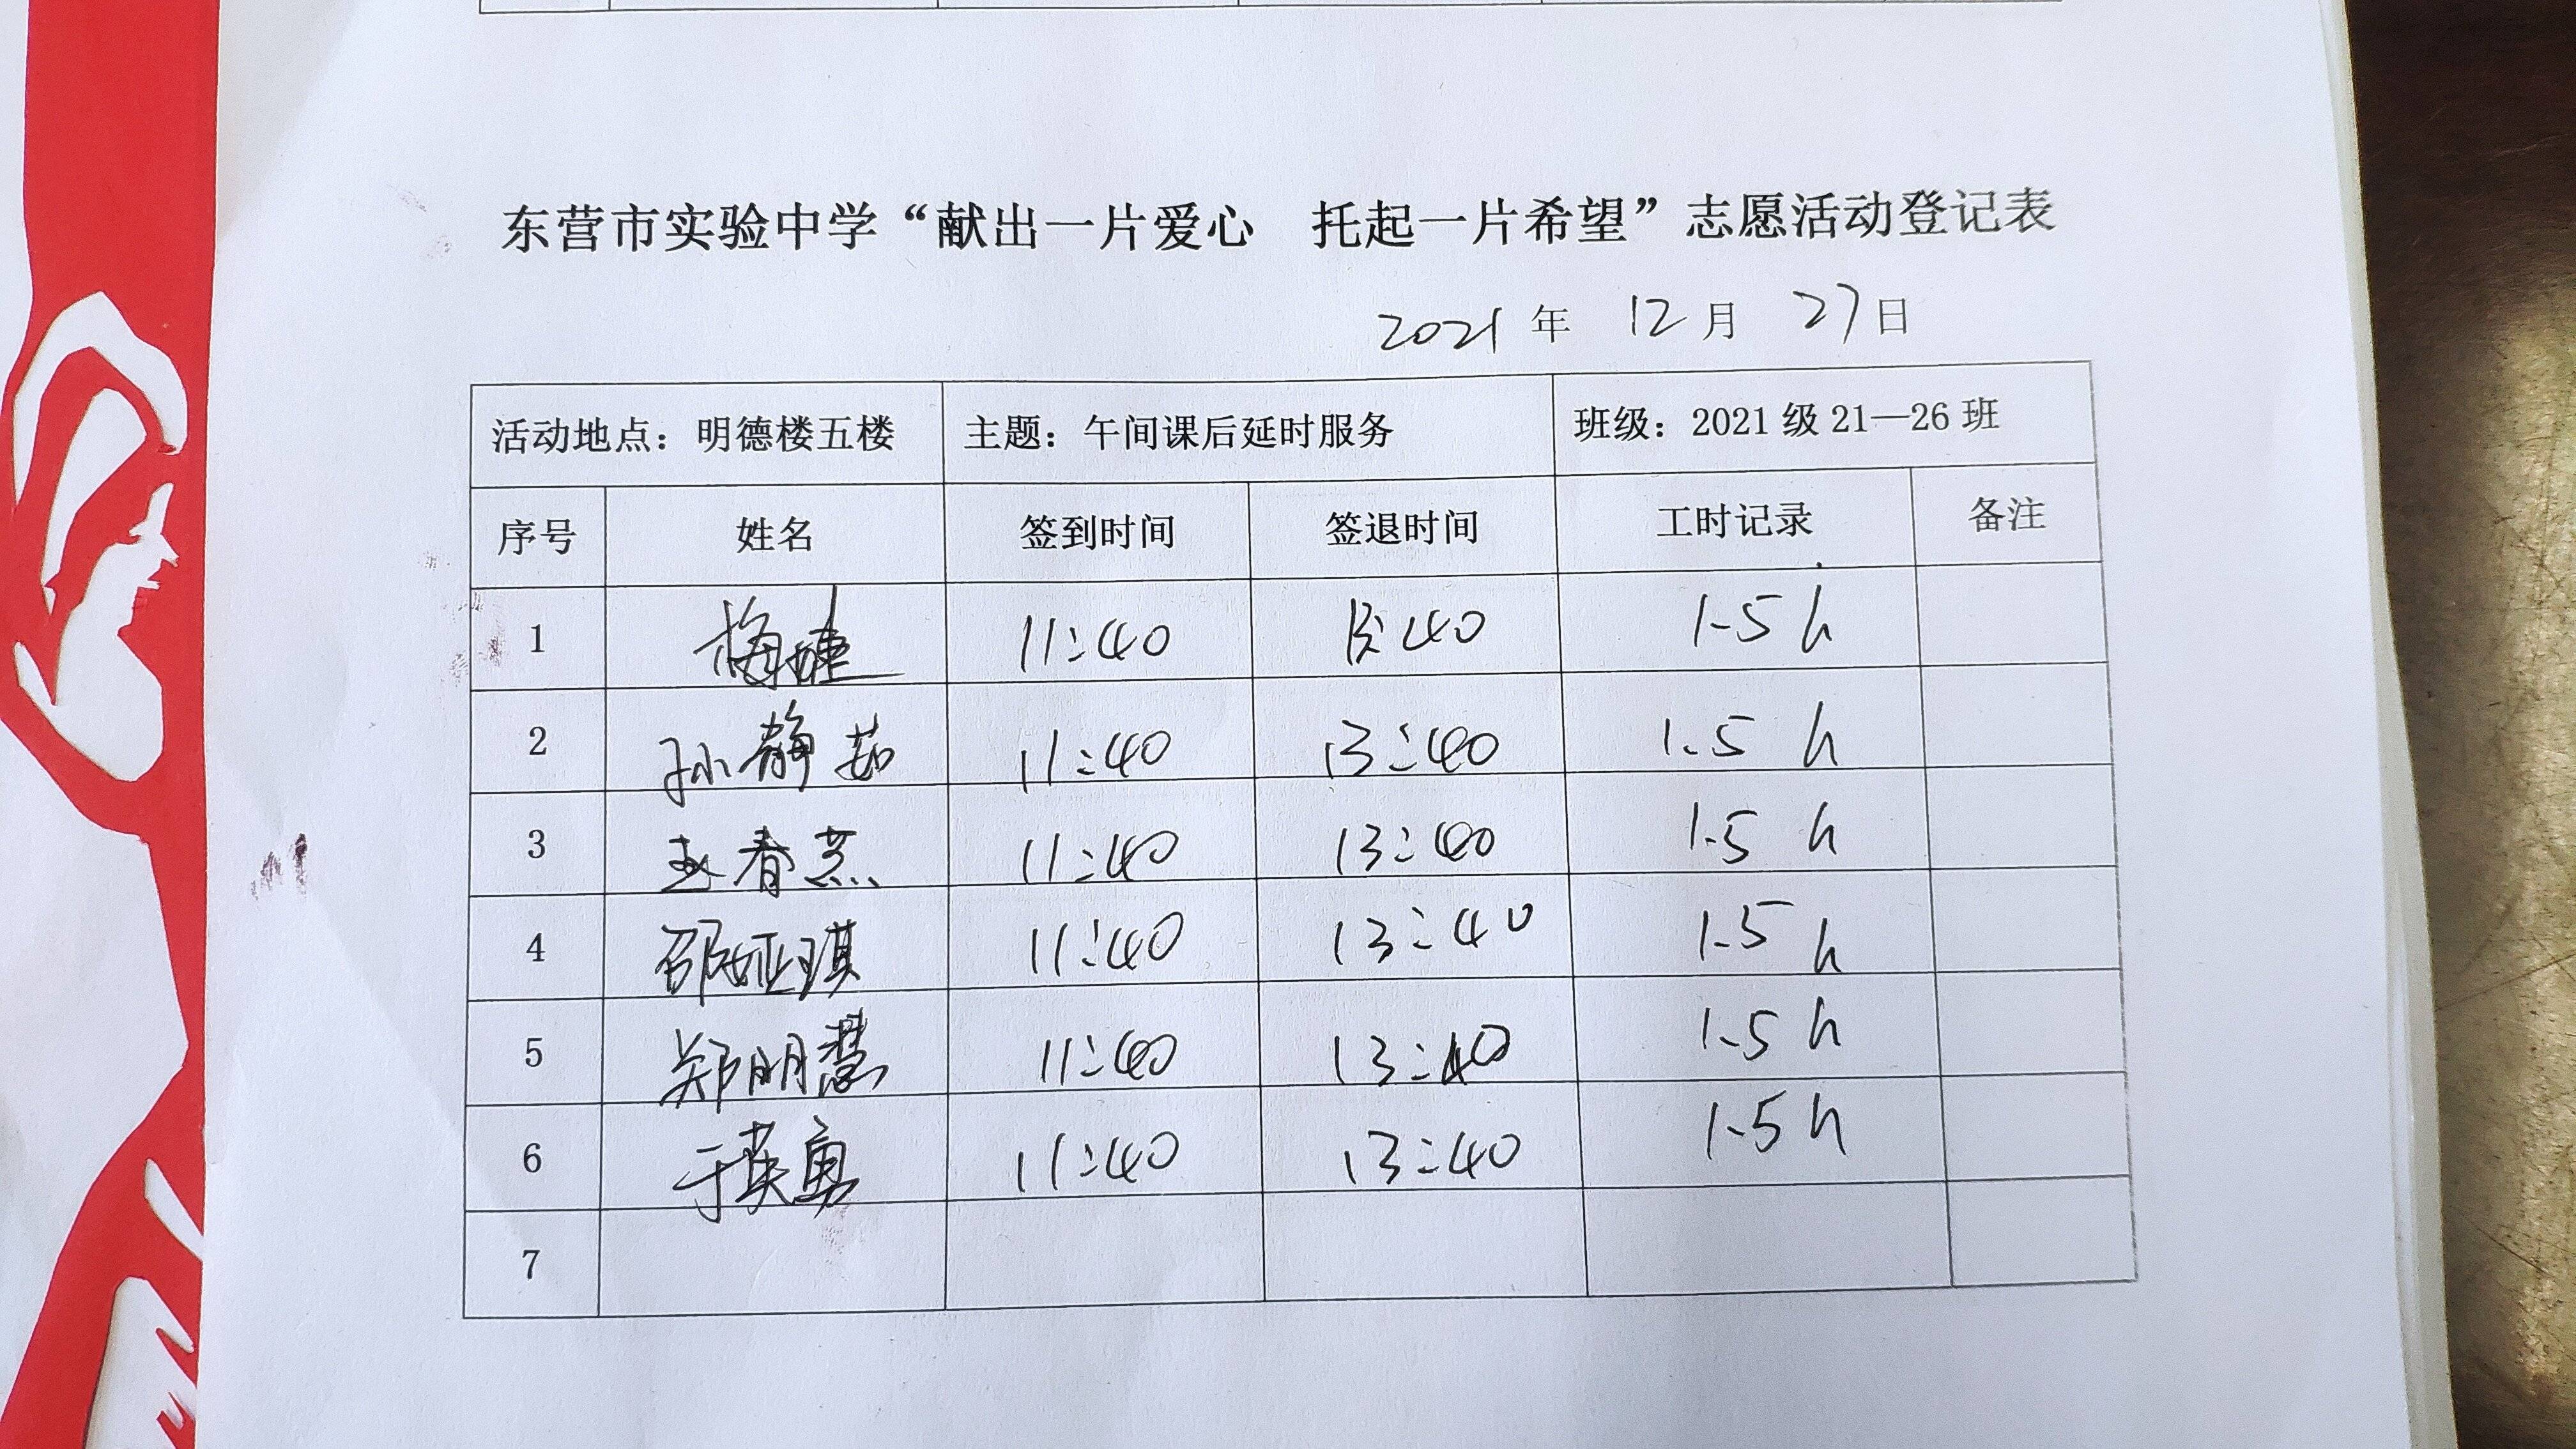 东营市实验中学“献出一片爱心 托起一片希望”志愿活动登记表
2021 年 12 月 27 日
活动地点：明德楼五楼 主题：午间课后延时服务 班级：2021 级 21—26 班
序号 姓名 签到时间 签退时间 工时记录 备注
1 梅 11:40 13:40 1.5 h
2 孙静茹 11:40 13:40 1.5 h
3 春燕 11:40 13:40 1.5 h
4 邵娅琪 11:40 13:40 1.5 h
5 郑明慧 11:40 13:40 1.5 h
6 于英勇 11:40 13:40 1.5 h
7